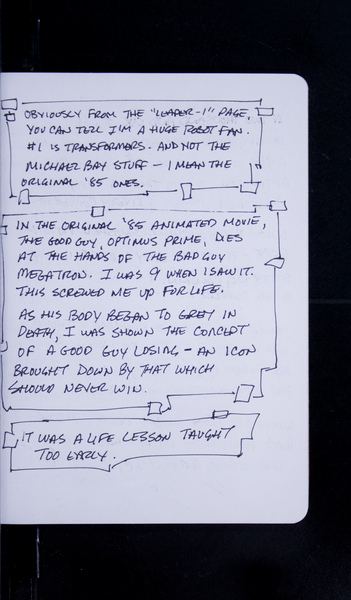 OBVIOUSLY FROM THE "LEADER-1" PAGE,
YOU CAN TELL I'M A HUGE ROBOT FAN.
#1 IS TRANSFORMERS. AND NOT THE
MICHAEL BAY STUFF - I MEAN THE
ORIGINAL '85 ONES.
IN THE ORIGINAL '85 ANIMATED MOVIE,
THE GOOD GUY, OPTIMUS PRIME, DIES
AT THE HANDS OF THE BAD GUY
MEGATRON. I WAS 9 WHEN I SAW IT.
THIS SCREWED ME UP FOR LIFE.
AS HIS BODY BEGAN TO GREY IN
DEATH, I WAS SHOWN THE CONCEPT
OF A GOOD GUY LOSING - AN ICON
BROUGHT DOWN BY THAT WHICH
SHOULD NEVER WIN.
IT WAS A LIFE LESSON TAUGHT
TOO EARLY.